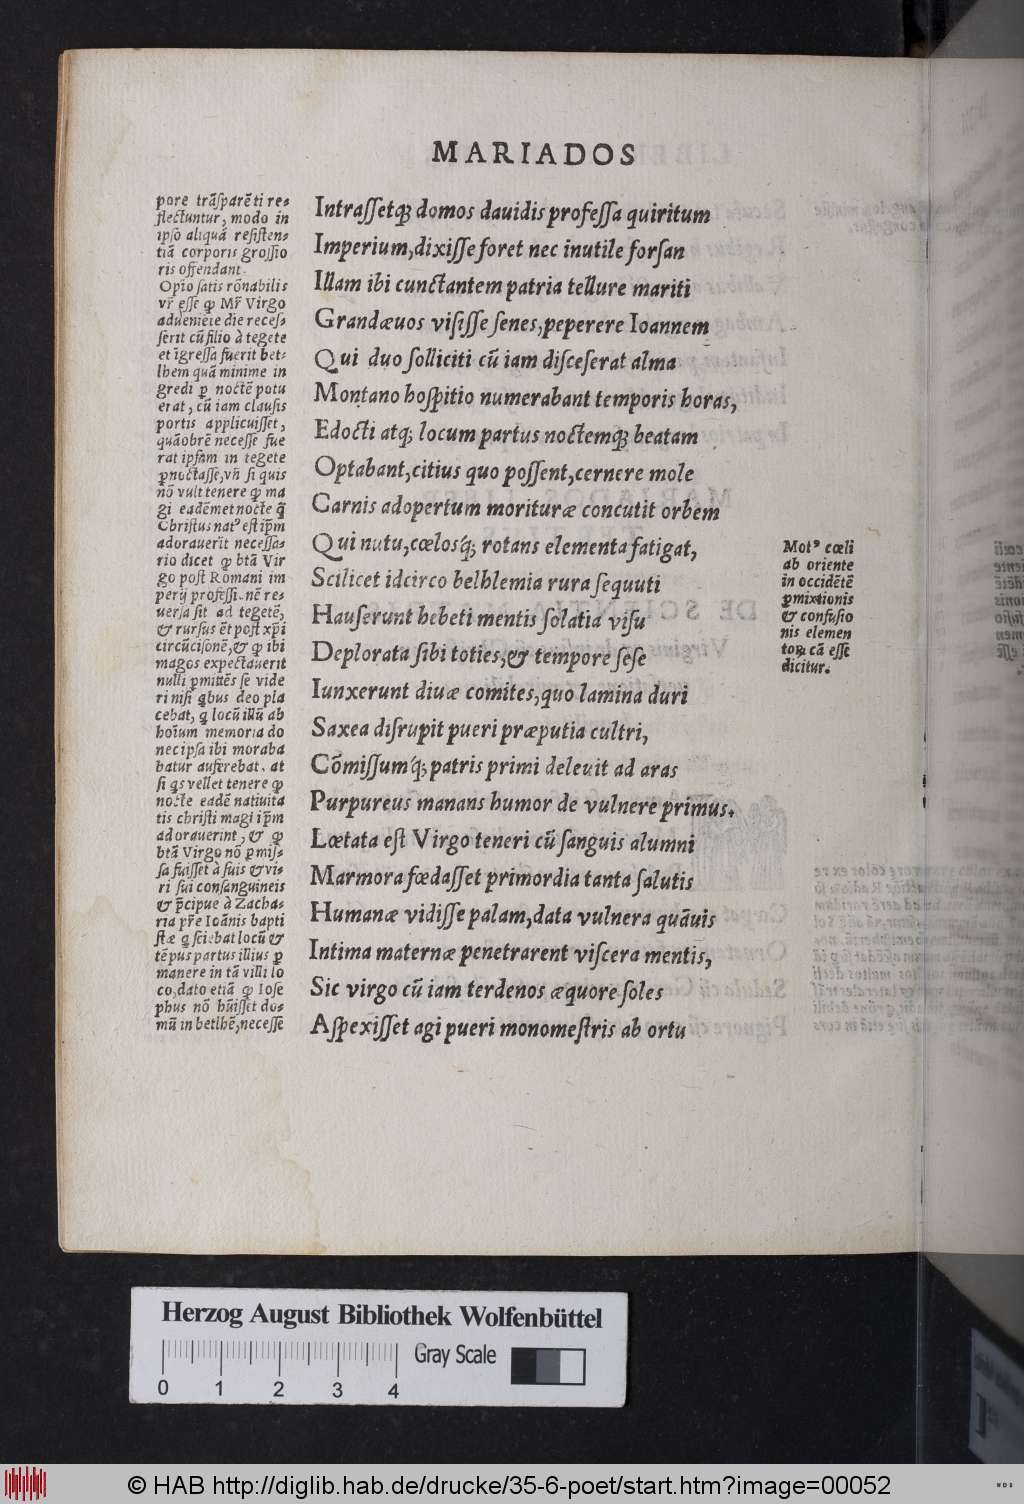 MARIADOS
pore trãsparẽti re-
flectuntur, modo in
ipso aliquã resisten-
tiã corporis grossio
ris offendant.
Opĩo satis rõnabilis
vr̃ esse ꝙ Mr̃ Virgo
adueniẽte die reces-
serit cũ filio à tegete
et ĩgressa fuerit bet-
lhem quã minime in
gredi ꝑ noctẽ potu
erat, cũ iam clausis
portis applicuisset,
quãobrẽ necesse fue
rat ipsam in tegete
ꝑnoctasse, vñ si quis
nõ vult tenere ꝙ ma
gi eadẽmet nocte q̃
Christus natꝰ est ip̃m
adorauerĩt necessa-
rio dicet ꝙ btã Vir
go post Romani im
perij professionẽ re-
uersa sit ad tegetẽ,
& rursus ẽt post xp̃i
circũcisonẽ, & ꝙ ibi
magos expectauerit
nulli ꝑmittẽs se vide
ri nisi q̃bus deo pla
cebat, q̃ locũ illũ ab
hoĩum memoria do
nec ipsa ibi moraba
batur auferebat. at
si q̃s vellet tenere ꝙ
nocte eadẽ natiuita
tis christi magi ip̃m
adorauerint, & ꝙ
btã Virgo nõ ꝑmis-
sa fuisset à suis & vi-
ri sui consanguineis
& p̃cipue à Zacha-
ria pr̃e Ioãnis bapti
stæ q̃ sciebat locũ &
tẽpus partus illius ꝑ
manere in tã villi lo
co, dato etiã ꝙ Iose
phus nõ hũisset do-
mũ in betlhẽ, necesse
Intrassetqꝫ domos dauidis professa quiritum
Imperium, dixisse foret nec inutile forsan
Illam ibi cunctantem patria tellure mariti
Grandæuos visisse senes, peperere Ioannem
Qui duo solliciti cũ iam disceserat alma
Montano hospitio numerabant temporis horas,
Edocti atqꝫ locum partus noctemqꝫ beatam
Optabant, citius quo possent, cernere mole
Carnis adopertum morituræ concutit orbem
Qui nutu, cœlosq́ꝫ rotans elementa fatigat,
Scilicet idcirco belhlemia rura sequuti
Hauserunt hebeti mentis solatia visu
Deplorata sibi toties, & tempore sese
Iunxerunt diuæ comites, quo lamina duri
Saxea disrupit pueri præputia cultri,
Cõmissumq́ꝫ patris primi deleuit ad aras
Purpureus manans humor de vulnere primus.
Lœtata est Virgo teneri cũ sanguis alumni
Marmora fœdasset primordia tanta salutis
Humanæ vidisse palam, data vulnera quãuis
Intima maternæ penetrarent viscera mentis,
Sic virgo cũ iam terdenos æquore soles
Aspexisset agi pueri monomestris ab ortu
Motꝰ cœli
ab oriente
in occidẽtẽ
ꝑmixtionis
& confusio
nis elemen
toꝝ cã esse
dicitur.
Herzog August Bibliothek Wolfenbüttel
Gray Scale
0 1 2 3 4
© HAB http://diglib.hab.de/drucke/35-6-poet/start.htm?image=00052